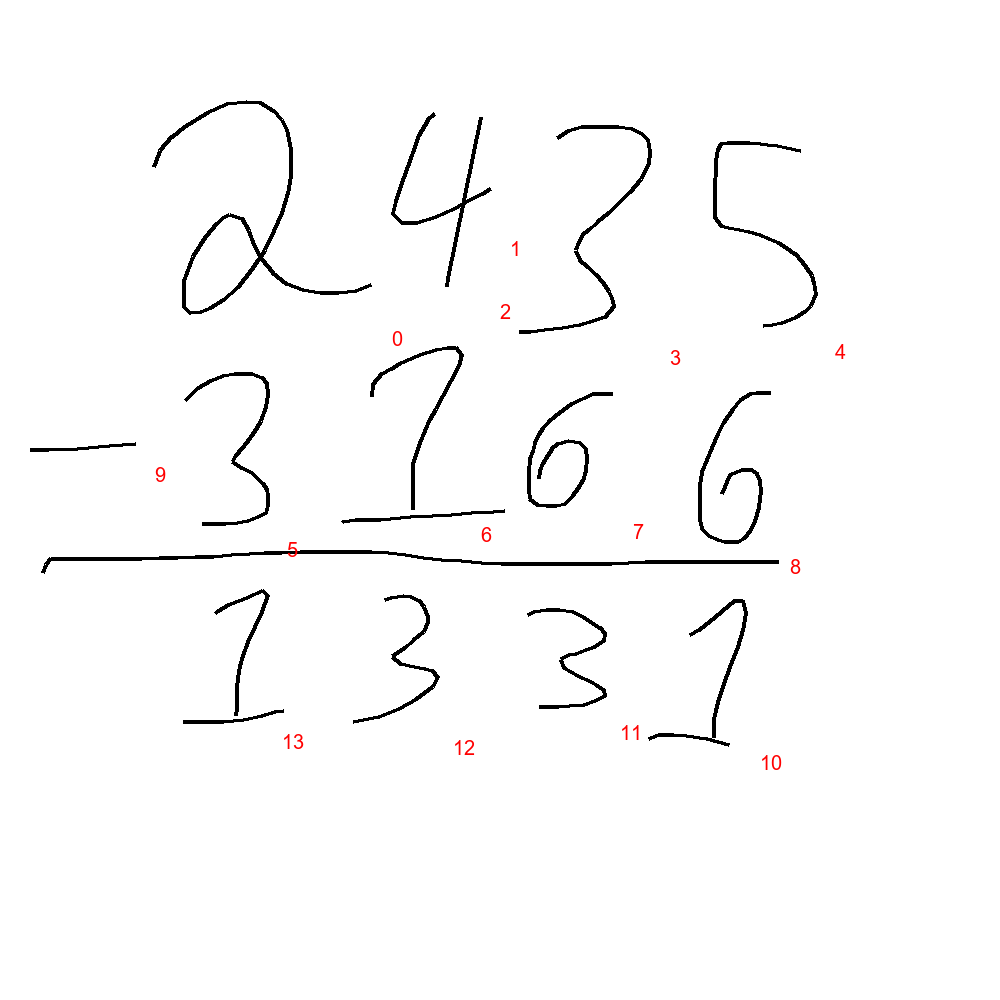 2435
1
2
0 3 4
- 3166
9
5 6 7 8
1331
13 12 11 10